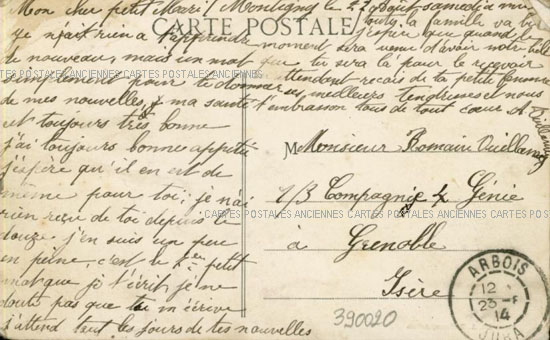 Mon cher petit Mari! Montigny le 22 Août samedi à midi
CARTE POSTALE
je n'ait rien à t'apprendre
de nouveau, mais un mot
simplement pour te donner
de mes nouvelles, ma santé
est toujours très bonne
j'ai toujours bonne appetit
j'espère qu'il en est de
même pour toi; je n'ai
rien reçu de toi depuis le
douze j'en suis un peu
en peine, c'est le petit
mot que je t'écrit, je ne
doute pas que toi m'écrive
j'attend tout les jours de tes nouvelles
toute la famille va bien
j'espère que quand le
moment sera venu d'avoir notre
que tu sera là pour le recevoir
attendant recois de ta petite femme
ses meilleurs tendresses et nous
t'embrasson tous de tout cœur. A.
Vuillemey
CARTES POSTALES ANCIENNES CARTES POSTALES ANCIENNES CARTES POSTALES ANCIENNES
M Monsieur Romain Vuillemey
1/3 Compagnie 4e Génie
CARTES POSTALES ANCIENNES CARTES POSTALES ANCIENNES CARTES POSTALES ANCIENNES
à Grenoble
Isère
ARBOIS
12
23-8
14
JURA
390020